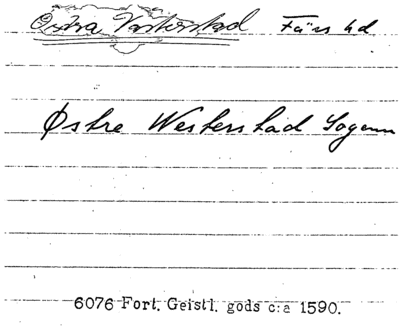 Östra Vesterstad Färs hd
Østre Westerstad Sogenn
6076 Fort. Geistl. gods c:a 1590.